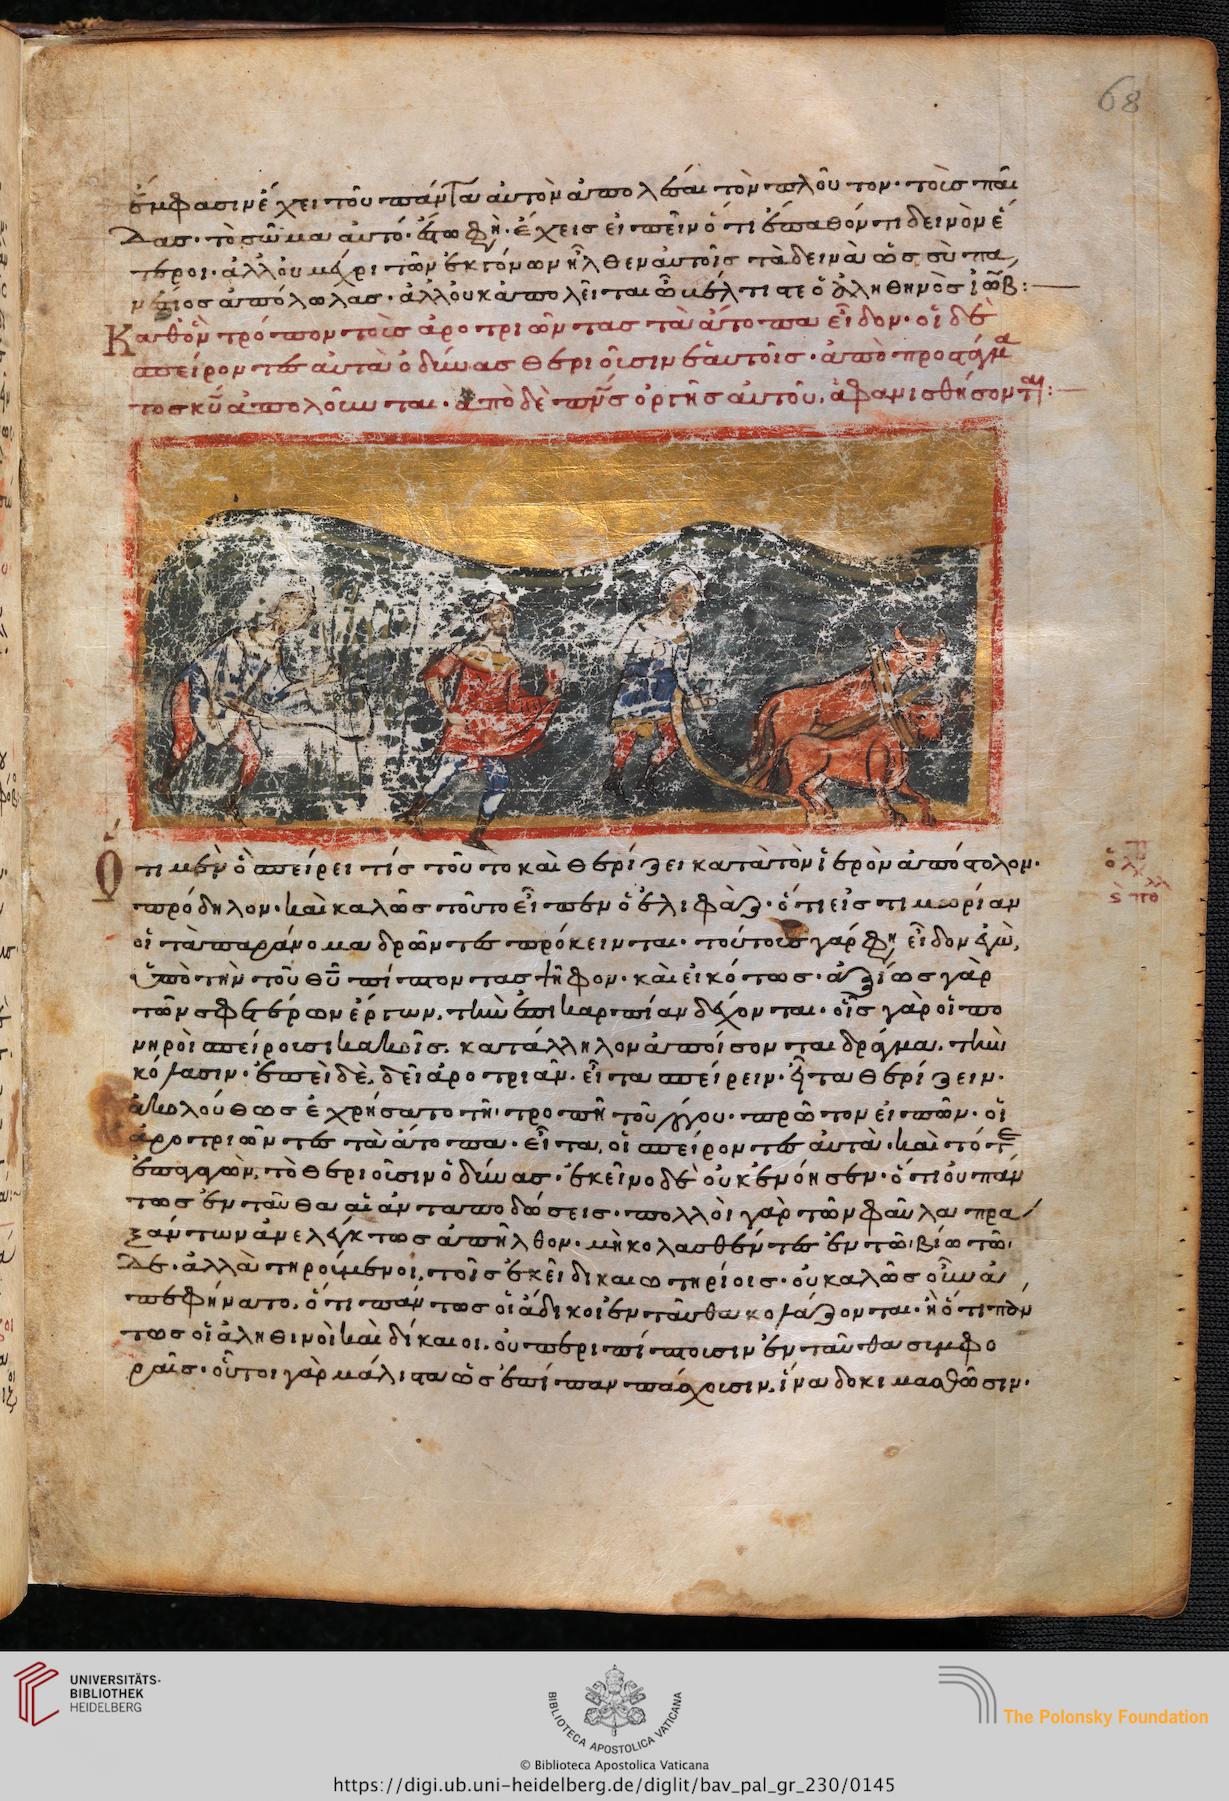 68
ἔμφασιν ἔχει τοῦ πάντα αὐτὸν ἀπολέσαι τὸν πλοῦτον· τοὺς παῖ
δας· τὸ σῶμα αὐτό· ἔχεις εἰπεῖν ὅτι ἔπαθόν τι δεινὸν ἕ
τεροι· ἀλλ' οὐ μέχρι τῶν ἐκγόνων ἦλθεν αὐτοῖς τὰ δεινὰ ὡς σὺ πα
νάγιος ἀπόλωλας· ἀλλ' οὐκ ἀπολεῖται ὦ βέλτιστε ὁ ἀληθινὸς ἰώβ:
Καθ' ὃν τρόπον τοὺς ἀροτριῶντας τὰ ἄτοπα εἶδον· οἱ δὲ
σπείροντες αὐτὰ ὀδύνας θεριοῦσιν ἑαυτοῖς· ἀπὸ προστάγμα
τος κυ ἀπολοῦνται· ἀπὸ δὲ πνς ὀργῆς αὐτοῦ, ἀφανισθήσονται:
Ὅτι μὲν ὃ σπείρει τίς τοῦτο καὶ θερίζει κατὰ τὸν ἱερὸν ἀπόστολον·
πρόδηλον· καὶ καλῶς τοῦτο εἶπεν ὁ ἐλιφάζ· ὅτι εἰς τιμωρίαν
οἱ τὰ παράνομα δρῶντες πρόκεινται· τούτους γάρ φη εἶδον ἐγὼ,
ὑπὸ τὴν τοῦ θυ πίπτοντας ψῆφον· καὶ εἰκότως· ἀξίως γὰρ
τῶν σφετέρων ἔργων, τὴν ἐπικαρπίαν δέχονται· οἷς γὰρ οἱ πο
νηροὶ σπείρουσι κακοῖς, κατάλληλον ἀποίσονται δράγμα, τὴν
κόλασιν· ἐπεὶ δὲ, δεῖ ἀροτριᾶν· εἶτα σπείρειν· εἶτα θερίζειν·
ἀκολούθως ἐχρήσατο τῇ τροπῇ τοῦ λόγου· πρῶτον εἰπὼν· οἱ
ἀροτριῶντες τὰ ἄτοπα· εἶτα, οἱ σπείροντες αὐτὰ· καὶ τότε
ἐπαγαγὼν, τὸ θεριοῦσιν ὀδύνας· ἐκεῖνο δὲ οὐκ ἐνόησεν· ὅτι οὐ πάν
τως ἐνταῦθα αἱ ἀνταποδόσεις· πολλοὶ γὰρ τῶν φαῦλα πρα
ξάντων ἀνελέγκτως ἀπῆλθον· μὴ κολασθέντες ἐν τῷ βίῳ τῷ
δε· ἀλλὰ τηρούμενοι, τοῖς ἐκεῖ δικαιωτηρίοις· οὐ καλῶς οὖν ἀ
πεφήνατο, ὅτι πάντως οἱ ἄδικοι ἐνταῦθα κολάζονται· ἢ ὅτι πάν
τως οἱ ἀληθινοὶ καὶ δίκαιοι, οὐ περιπίπτουσιν ἐνταῦθα συμφο
ραῖς· οὗτοι γὰρ μάλιστα ὡς ἐπίπαν πάσχουσιν, ἵνα δοκιμασθῶσιν·
UNIVERSITÄTS-
BIBLIOTHEK
HEIDELBERG
BIBLIOTECA APOSTOLICA VATICANA
© Biblioteca Apostolica Vaticana
The Polonsky Foundation
https://digi.ub.uni-heidelberg.de/diglit/bav_pal_gr_230/0145